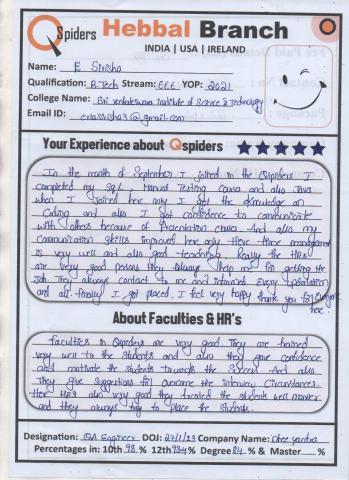 QSpiders Hebbal Branch
INDIA | USA | IRELAND
Name: E Sirisha
Qualification: B.Tech Stream: EEE YOP: 2021
College Name: Sri venkateswara institute of Science & Technology
Email ID: @gmail.com
Your Experience about Qspiders
In the month of September I joined in the Qspiders. I
completed my Sql, Manual Testing course and also Java
when I joined here only I got the knowledge on
Coding and also I got confidence to communicate
with others because of Presentation class. And also my
communication skills improved here only. Here time management
is very well and also good teaching. Really the HR's
are very good persons they always help me for getting the
Job. They always contact to me and informed Every
and all. Finally I got placed. I feel very happy thank you for Everyone
here.
About Faculties & HR's
faculties in Qspiders are very good. They are trained
very well to the students and also they gave confidence
and motivate the students towards the success. And also
They give suggestions for overcome the interview circumstances.
Here HR's also very good they treated the students well manner
and they always try to place the students.
Designation: QA Engineer DOJ: 27/1/23 Company Name: Dhee yantra
Percentages in: 10th 98 % 12th 93.4 % Degree 84 % & Master %